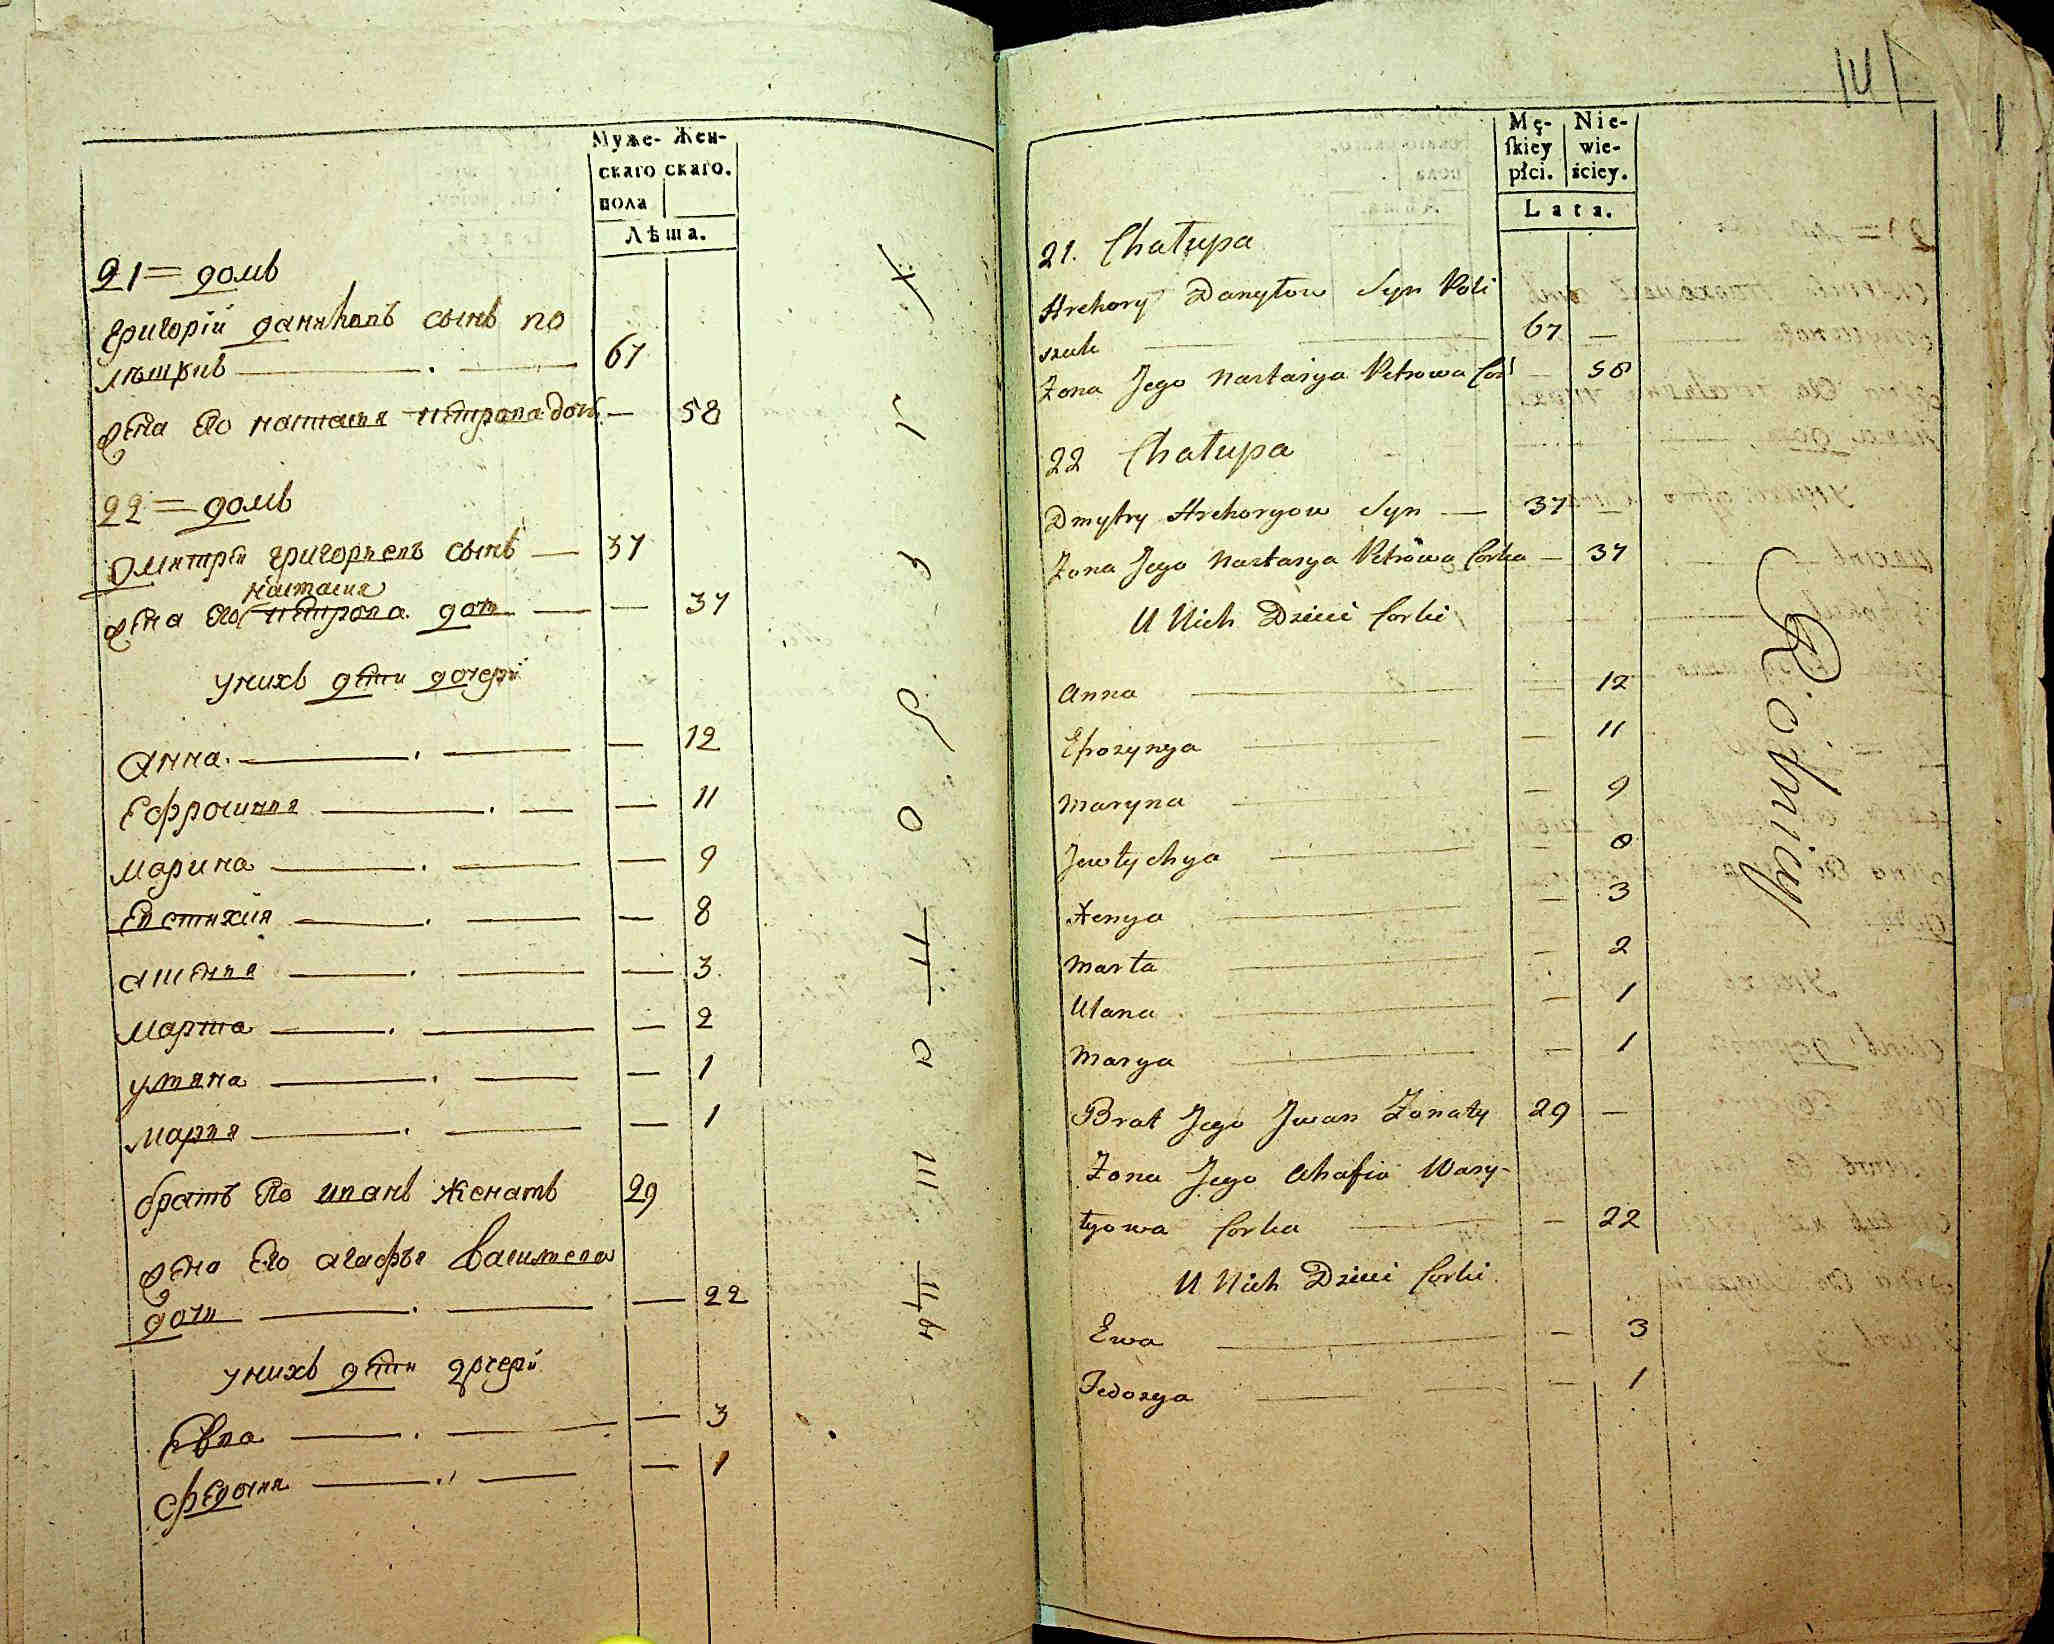 Муже- Жен-
скаго скаго.
пола
Лѣта.
21 = домъ
Григорій данилов сынъ по
лѣщукъ — 67
жена его настасія петрова доч — 58
22 = домъ
Дмитрій григорьевъ сынъ — 37
настасия
жена его петрова доч — — 37
у нихъ дѣти дочери
Анна. — — 12
Ефросинья — — 11
Марина — — 9
Евстихия — — 8
Марта — — 2
Уляна — — 1
Марья — — 1
братъ его иванъ женатъ 29
жена его агафья василева
дочь — — 22
у нихъ дѣти дочери
Евва — — 3
Федосия — — 1
141
Mę- Nie-
skiey wie-
płci. ściey.
Lata.
21. Chałupa
Hrehory Danyłow Syn Poli
szuk — 67 —
Żona Jego Nastasya Petrowa Cor — 58
22 Chałupa
Dmytry Hrehoryow Syn — 37
Żona Jego Nastasya Petrowa Corka — 37
U Nich Dzieci Corki
Anna — — 12
Efrozynya — — 11
Maryna — — 9
Jewtychya — — 8
Xenya — — 3
Marta — — 2
Ulana — — 1
Marya — — 1
Brat Jego Jwan Żonaty 29 —
Żona Jego Ahafia Wasy-
lyowa Corka — — 22
U Nich Dzieci Corki
Ewa — — 3
Fedosya — — 1
Rolnicy